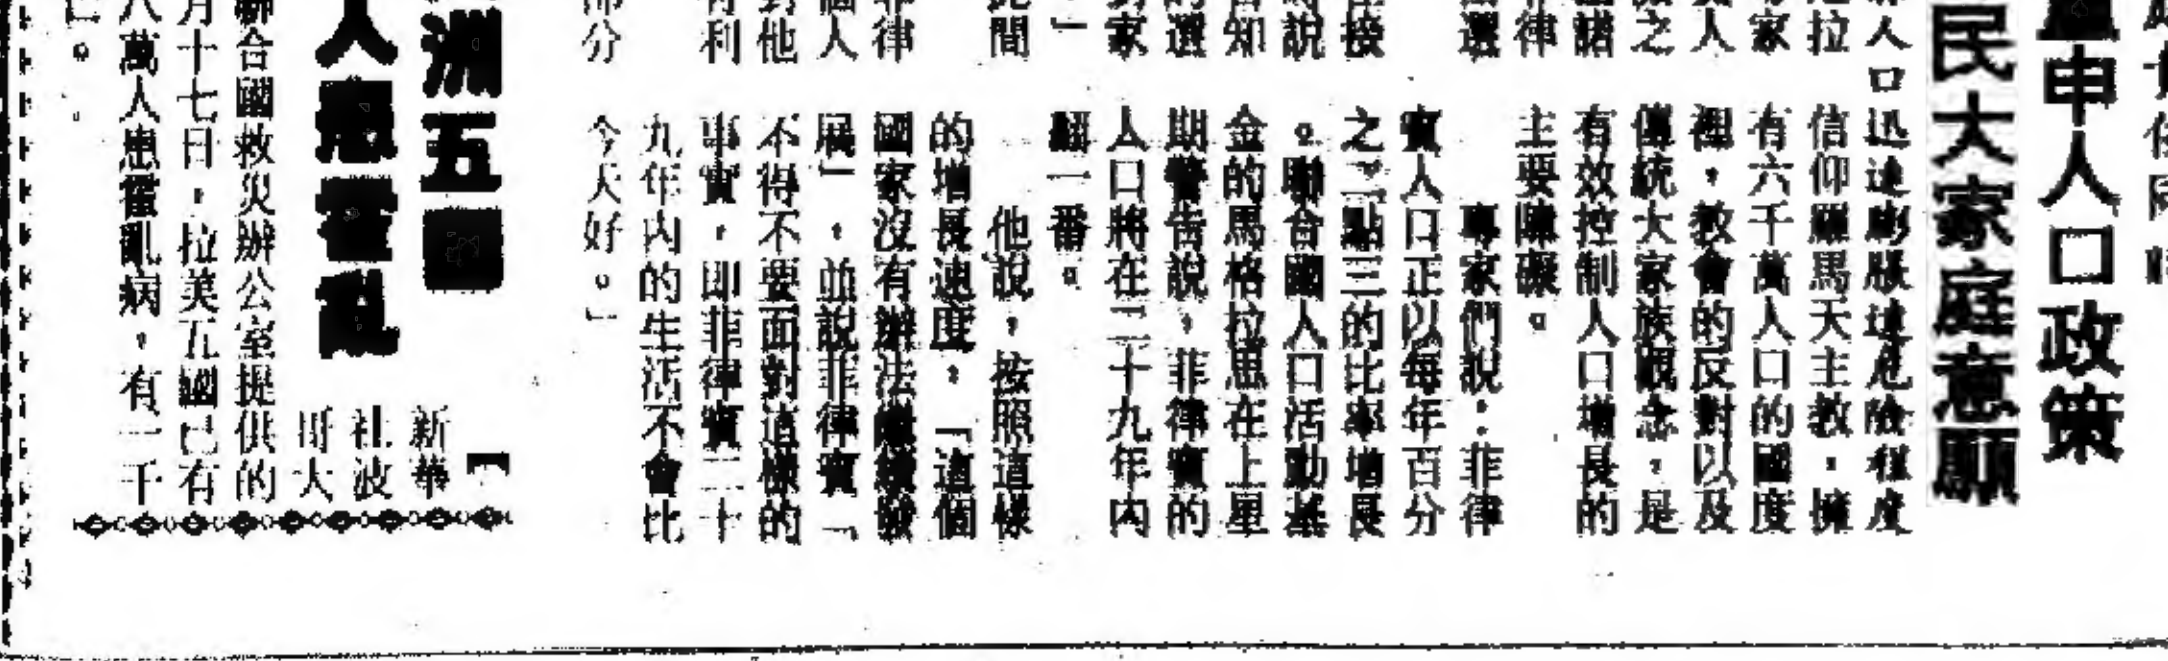 申人口政策
民大家庭意願
人口迅速膨脹達危險程度
拉
信仰羅馬天主教,擁
家
有六千萬人口的國度
人
裡,教會的反對以及
之
傳統大家族觀念,是
諸
有效控制人口增長的
律
主要障礙。
選
專家們說:菲律
賓人口正以每年百分
接
之二點三的比率增長
說
。聯合國人口活動基
知
金的馬格拉思在上星
選
期警告說,菲律賓的
家
人口將在二十九年內
」
翻一番。
間
他說,按照這樣
的增長速度,「這個
律
國家沒有辦法繼續發
人
展」,並說菲律賓「
他
不得不要面對這樣的
利
事實,即菲律賓二十
九年內的生活不會比
分
今天好。」
洲五國
人患霍亂
新華
社波
哥大
聯合國救災辦公室提供的
月十七日,拉美五國已有
八萬人患霍亂病,有一千
亡。